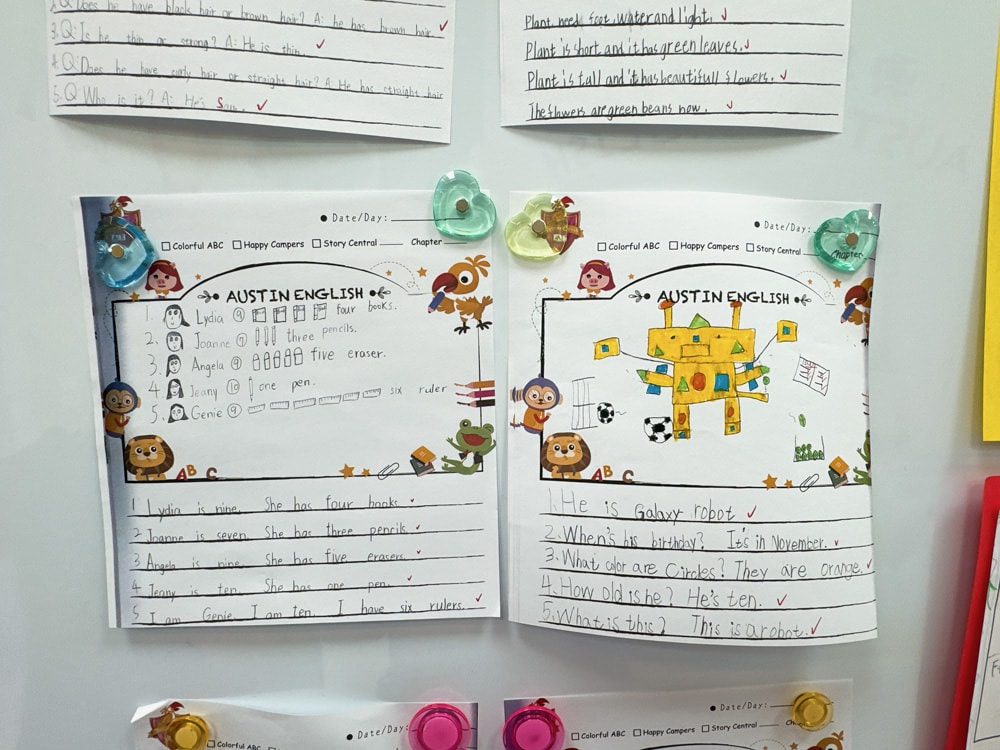 2. Q: Does he have black hair or brown hair? A: he has brown hair
3. Q: Is he thin or strong? A: He is thin.
4. Q: Does he have curly hair or straight hair? A: He has straight hair
5. Q: Who is it? A: He's Sam.
Plant need foot, water and light.
Plant is short and it has green leaves.
Plant is tall and it has beautifull flowers.
The flowers are green beans now.
Date/Day:
Colorful ABC Happy Campers Story Central Chapter
AUSTIN ENGLISH
1. Lydia 9 four books.
2. Joanne 7 three pencils.
3. Angela 9 five eraser.
4. Jeany 10 one pen.
5. Genie 9 six ruler
A B C
1 Lydia is nine. She has four books.
2 Joanne is seven. She has three pencils.
3 Angela is nine. She has five erasers.
4 Jeany is ten. She has one pen.
5 I am Genie. I am ten. I have six rulers.
Date/Day:
Colorful ABC Happy Campers Story Central Chapter
AUSTIN ENGLISH
A B C
1. He is Galaxy robot
2. When's his birthday? It's in November.
3. What color are Circles? They are orange.
4. How old is he? He's ten.
5. What is this? This is a robot.
Date/Day:
Colorful ABC Happy Campers Story Central
Date/Day:
Colorful ABC Happy Campers Story Central